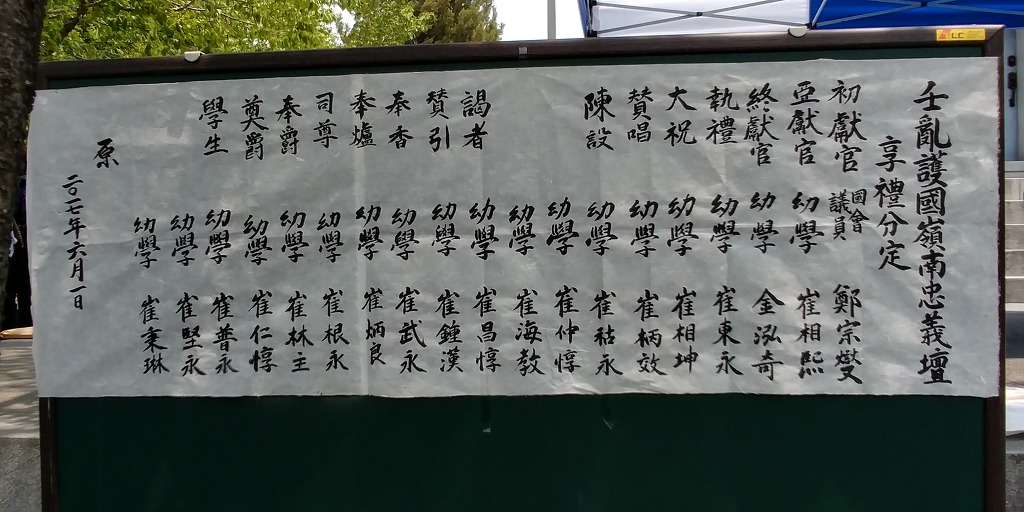 壬亂護國嶺南忠義壇
享禮分定
初獻官 國會議員 鄭宗燮
亞獻官 幼學 崔相熙
終獻官 幼學 金泓奇
執禮 幼學 崔東永
大祝 幼學 崔相坤
贊唱 幼學 崔柄效
陳設 幼學 崔秙永
幼學 崔仲惇
幼學 崔海教
謁者 幼學 崔昌惇
贊引 幼學 崔鍾漢
奉香 幼學 崔武永
奉爐 幼學 崔炳良
司尊 幼學 崔根永
奉爵 幼學 崔林主
奠爵 幼學 崔仁惇
學生 幼學 崔普永
幼學 崔堅永
幼學 崔秉琳
原
二〇一七年 六月 一日